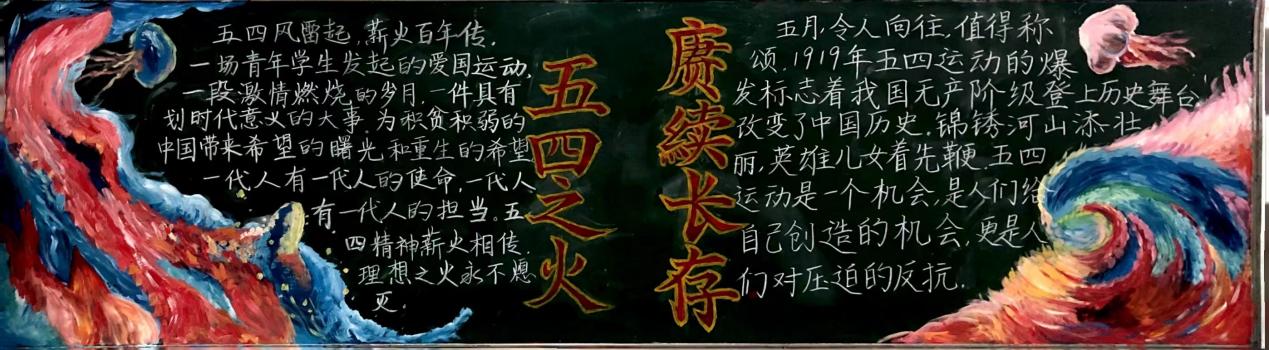 五四风雷起,薪火百年传.
一场青年学生发起的爱国运动,
一段激情燃烧的岁月,一件具有
划时代意义的大事.为积贫积弱的
中国带来希望的曙光和重生的希望
一代人有一代人的使命,一代人
有一代人的担当。五
四精神薪火相传.
理想之火永不熄
灭.
五四之火
赓续长存
五月,令人向往,值得称
颂.1919年五四运动的爆
发标志着我国无产阶级登上历史舞台,
改变了中国历史.锦锈河山添壮
丽,英雄儿女着先鞭.五四
运动是一个机会,是人们给
自己创造的机会,更是人
们对压迫的反抗.